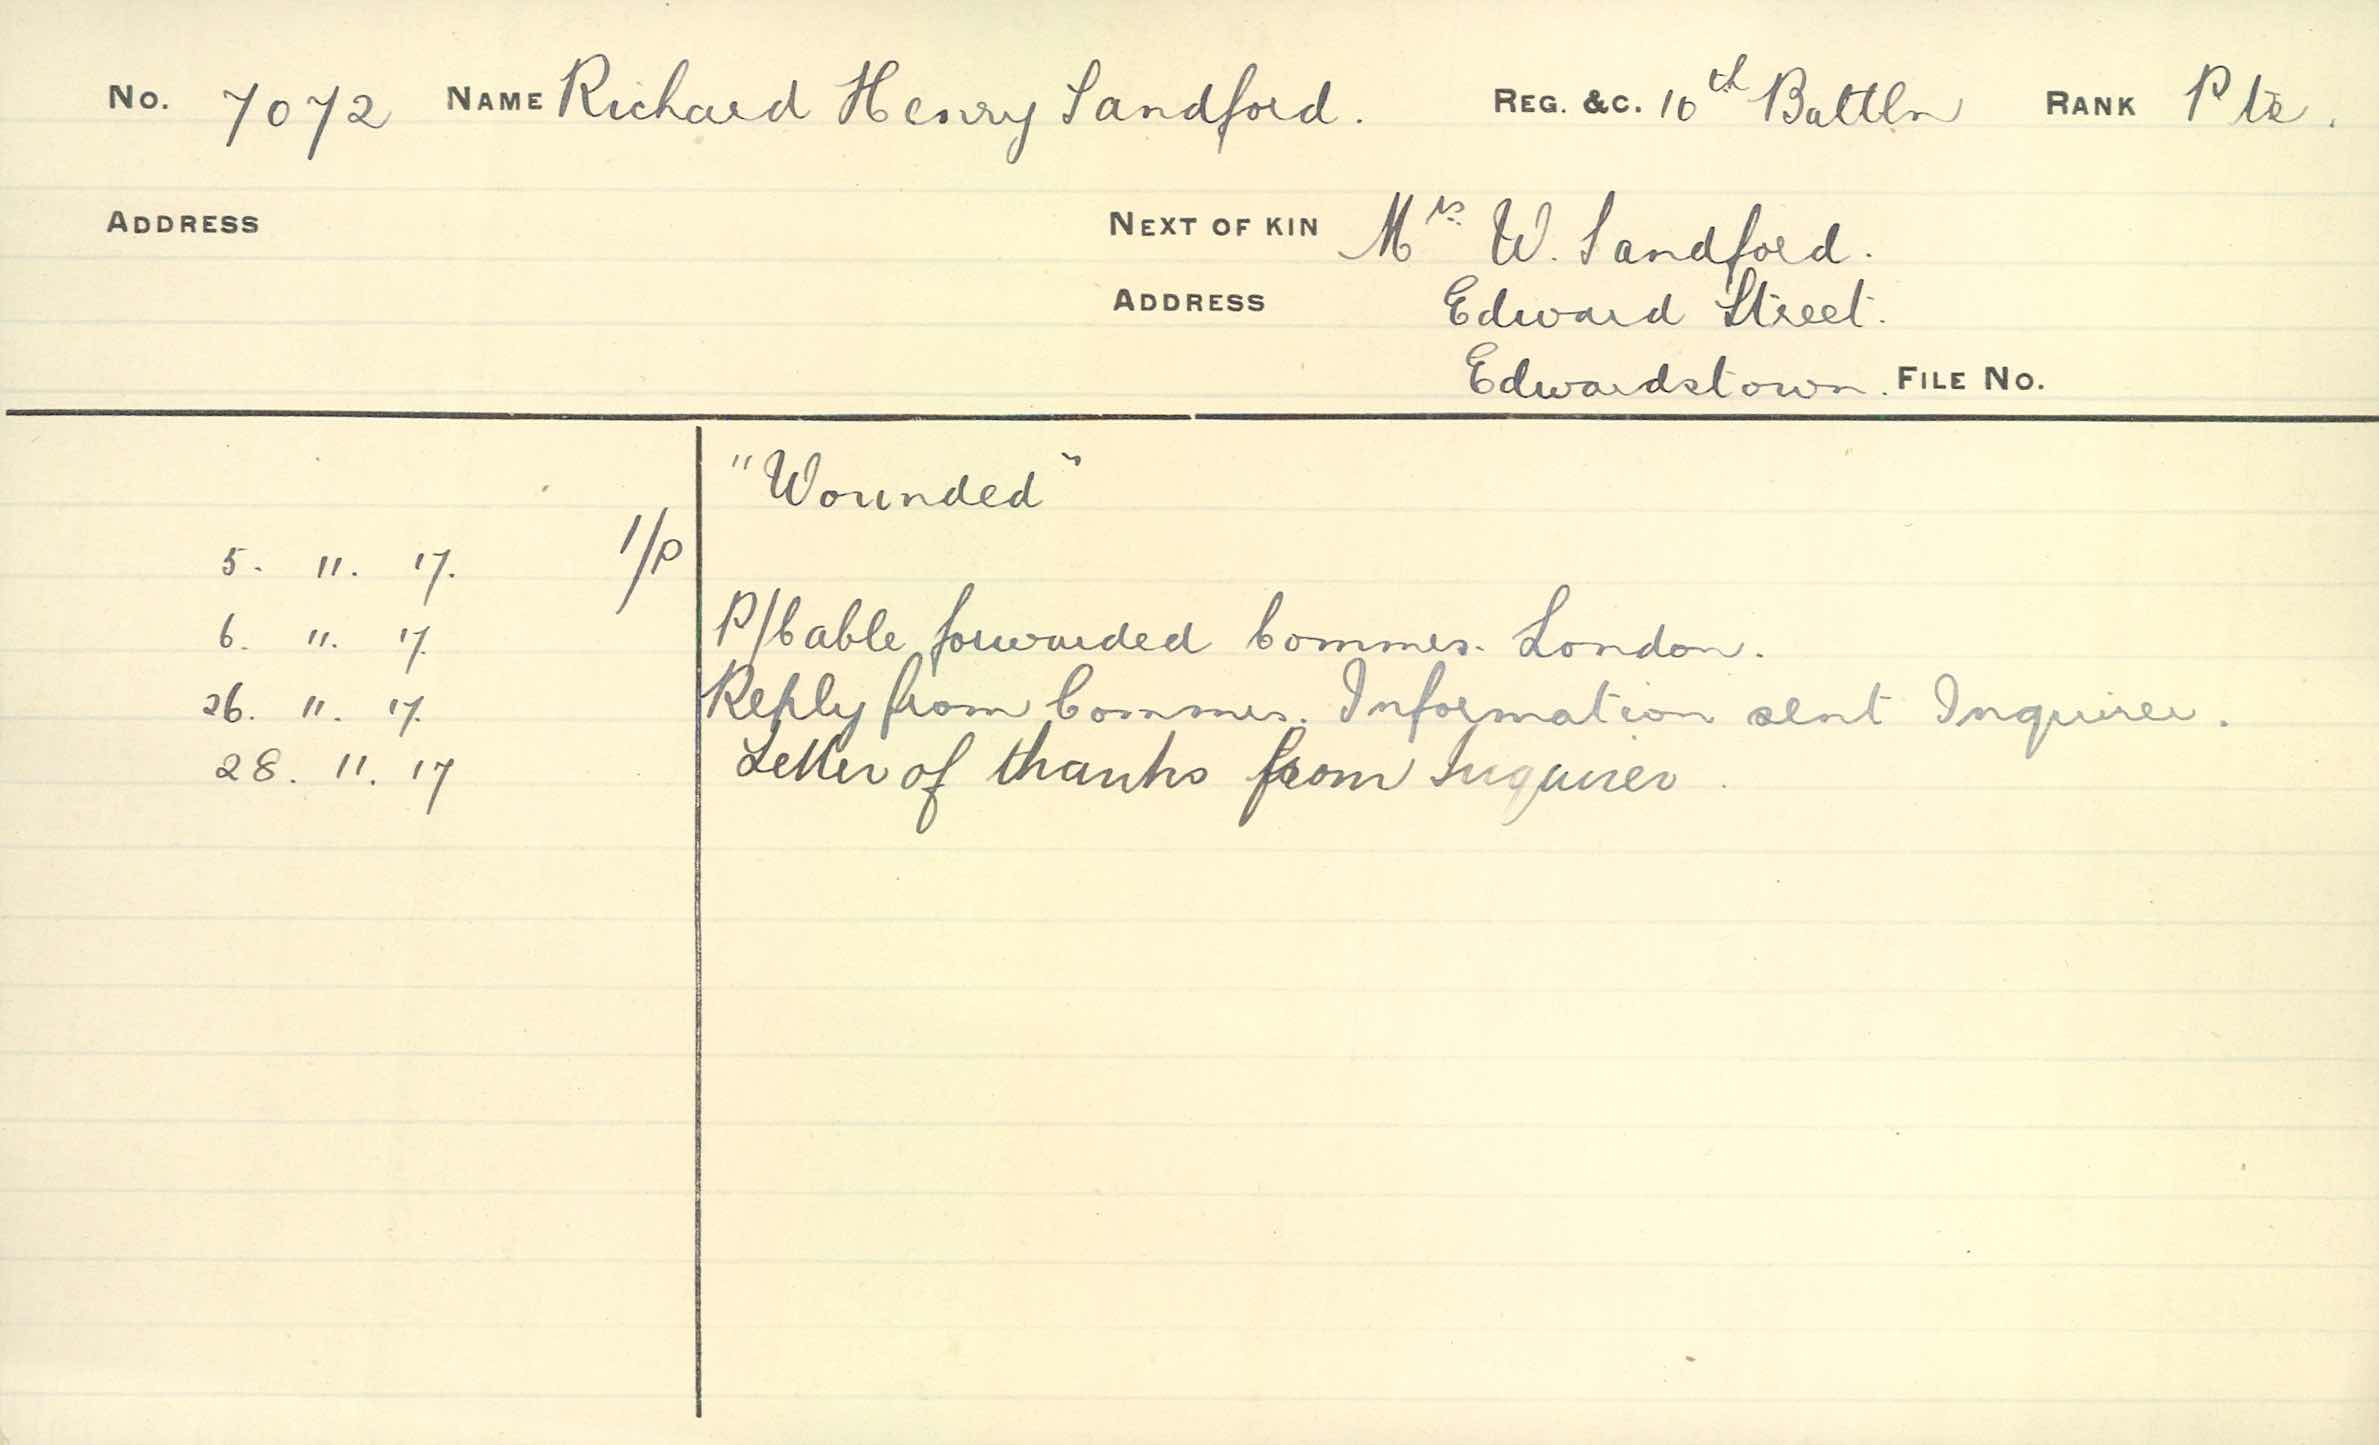 No. 7072 NAME Richard Henry Sandford. REG. &C. 10th Battln RANK Pte.
ADDRESS NEXT OF KIN Mrs W. Sandford.
ADDRESS Edward Street.
Edwardstown. FILE No.
"Wounded"
5. 11. 17. I/P
6. 11. 17. P/Cable forwarded Commrs. London.
26. 11. 17. Reply from Commrs. Information sent Inquirer.
28. 11. 17 Letter of thanks from Inquirer.